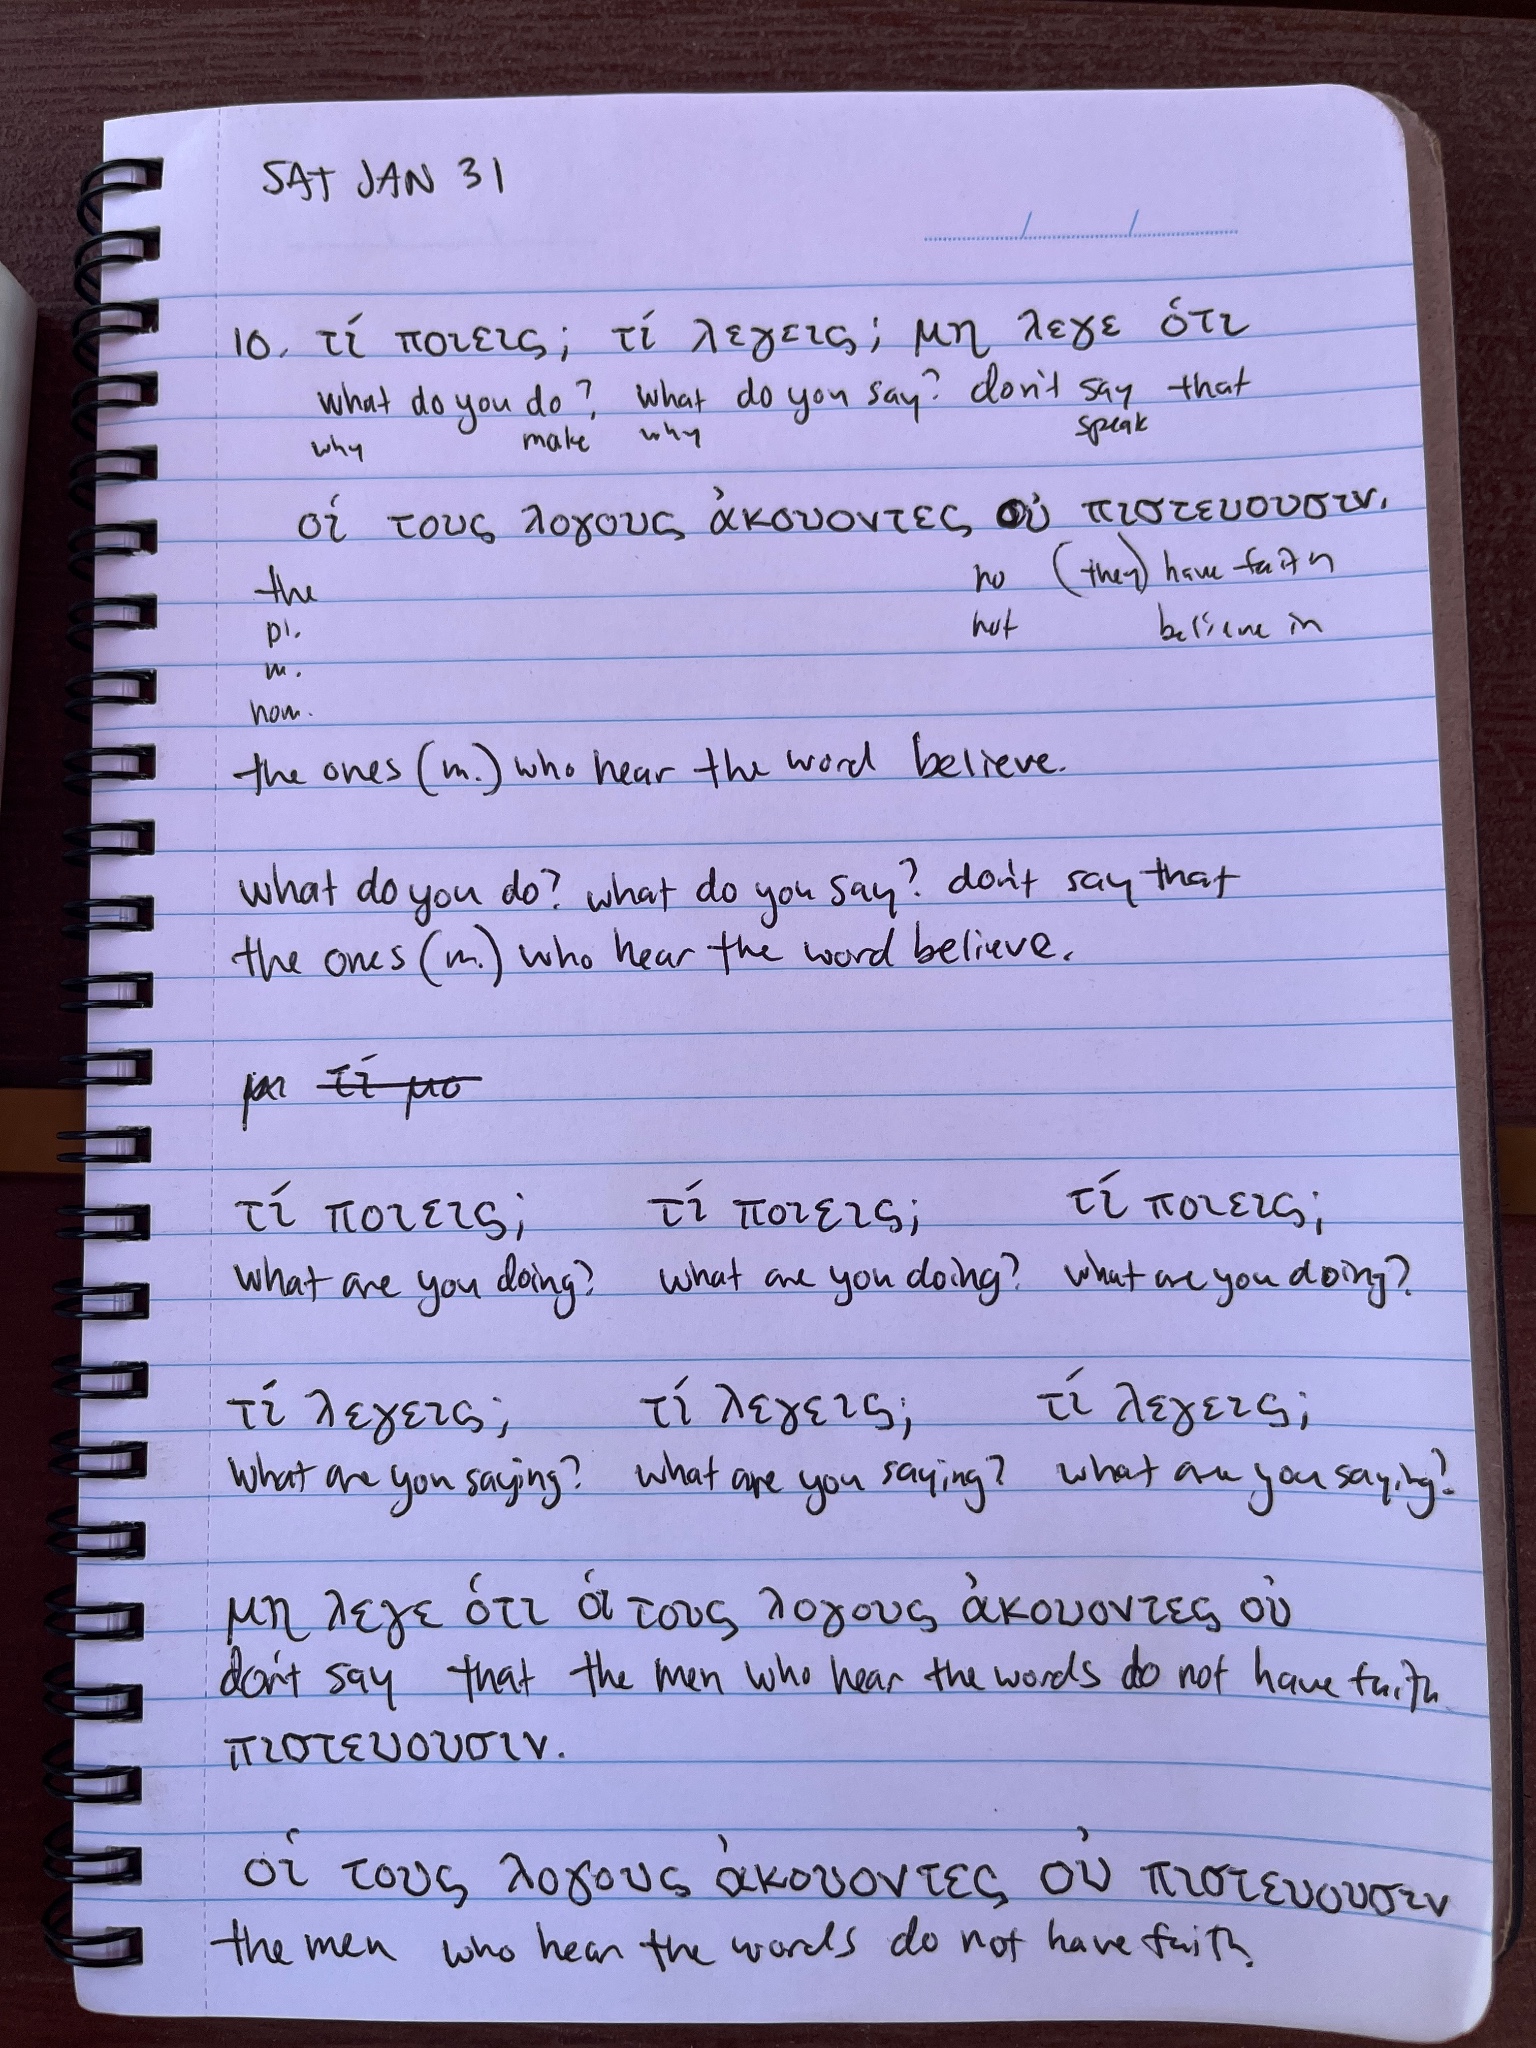 SAT JAN 31
10. τί ποιεις; τί λεγεις; μη λεγε ὁτι
what do you do? what do you say? don't say that
why make why speak
οἱ τους λογους ἀκουοντες οὐ πιστευουσιν.
the no (they) have faith
pl. not believe in
m.
nom.
the ones (m.) who hear the word believe.
what do you do? what do you say? don't say that
the ones (m.) who hear the word believe.
τί μο
τί ποιεις; τί ποιεις; τί ποιεις;
what are you doing? what are you doing? what are you doing?
τί λεγεις; τί λεγεις; τί λεγεις;
what are you saying? what are you saying? what are you saying?
μη λεγε ὁτι οἱ τους λογους ἀκουοντες οὐ
don't say that the men who hear the words do not have faith
πιστευουσιν.
οἱ τους λογους ἀκουοντες οὐ πιστευουσιν
the men who hear the words do not have faith.